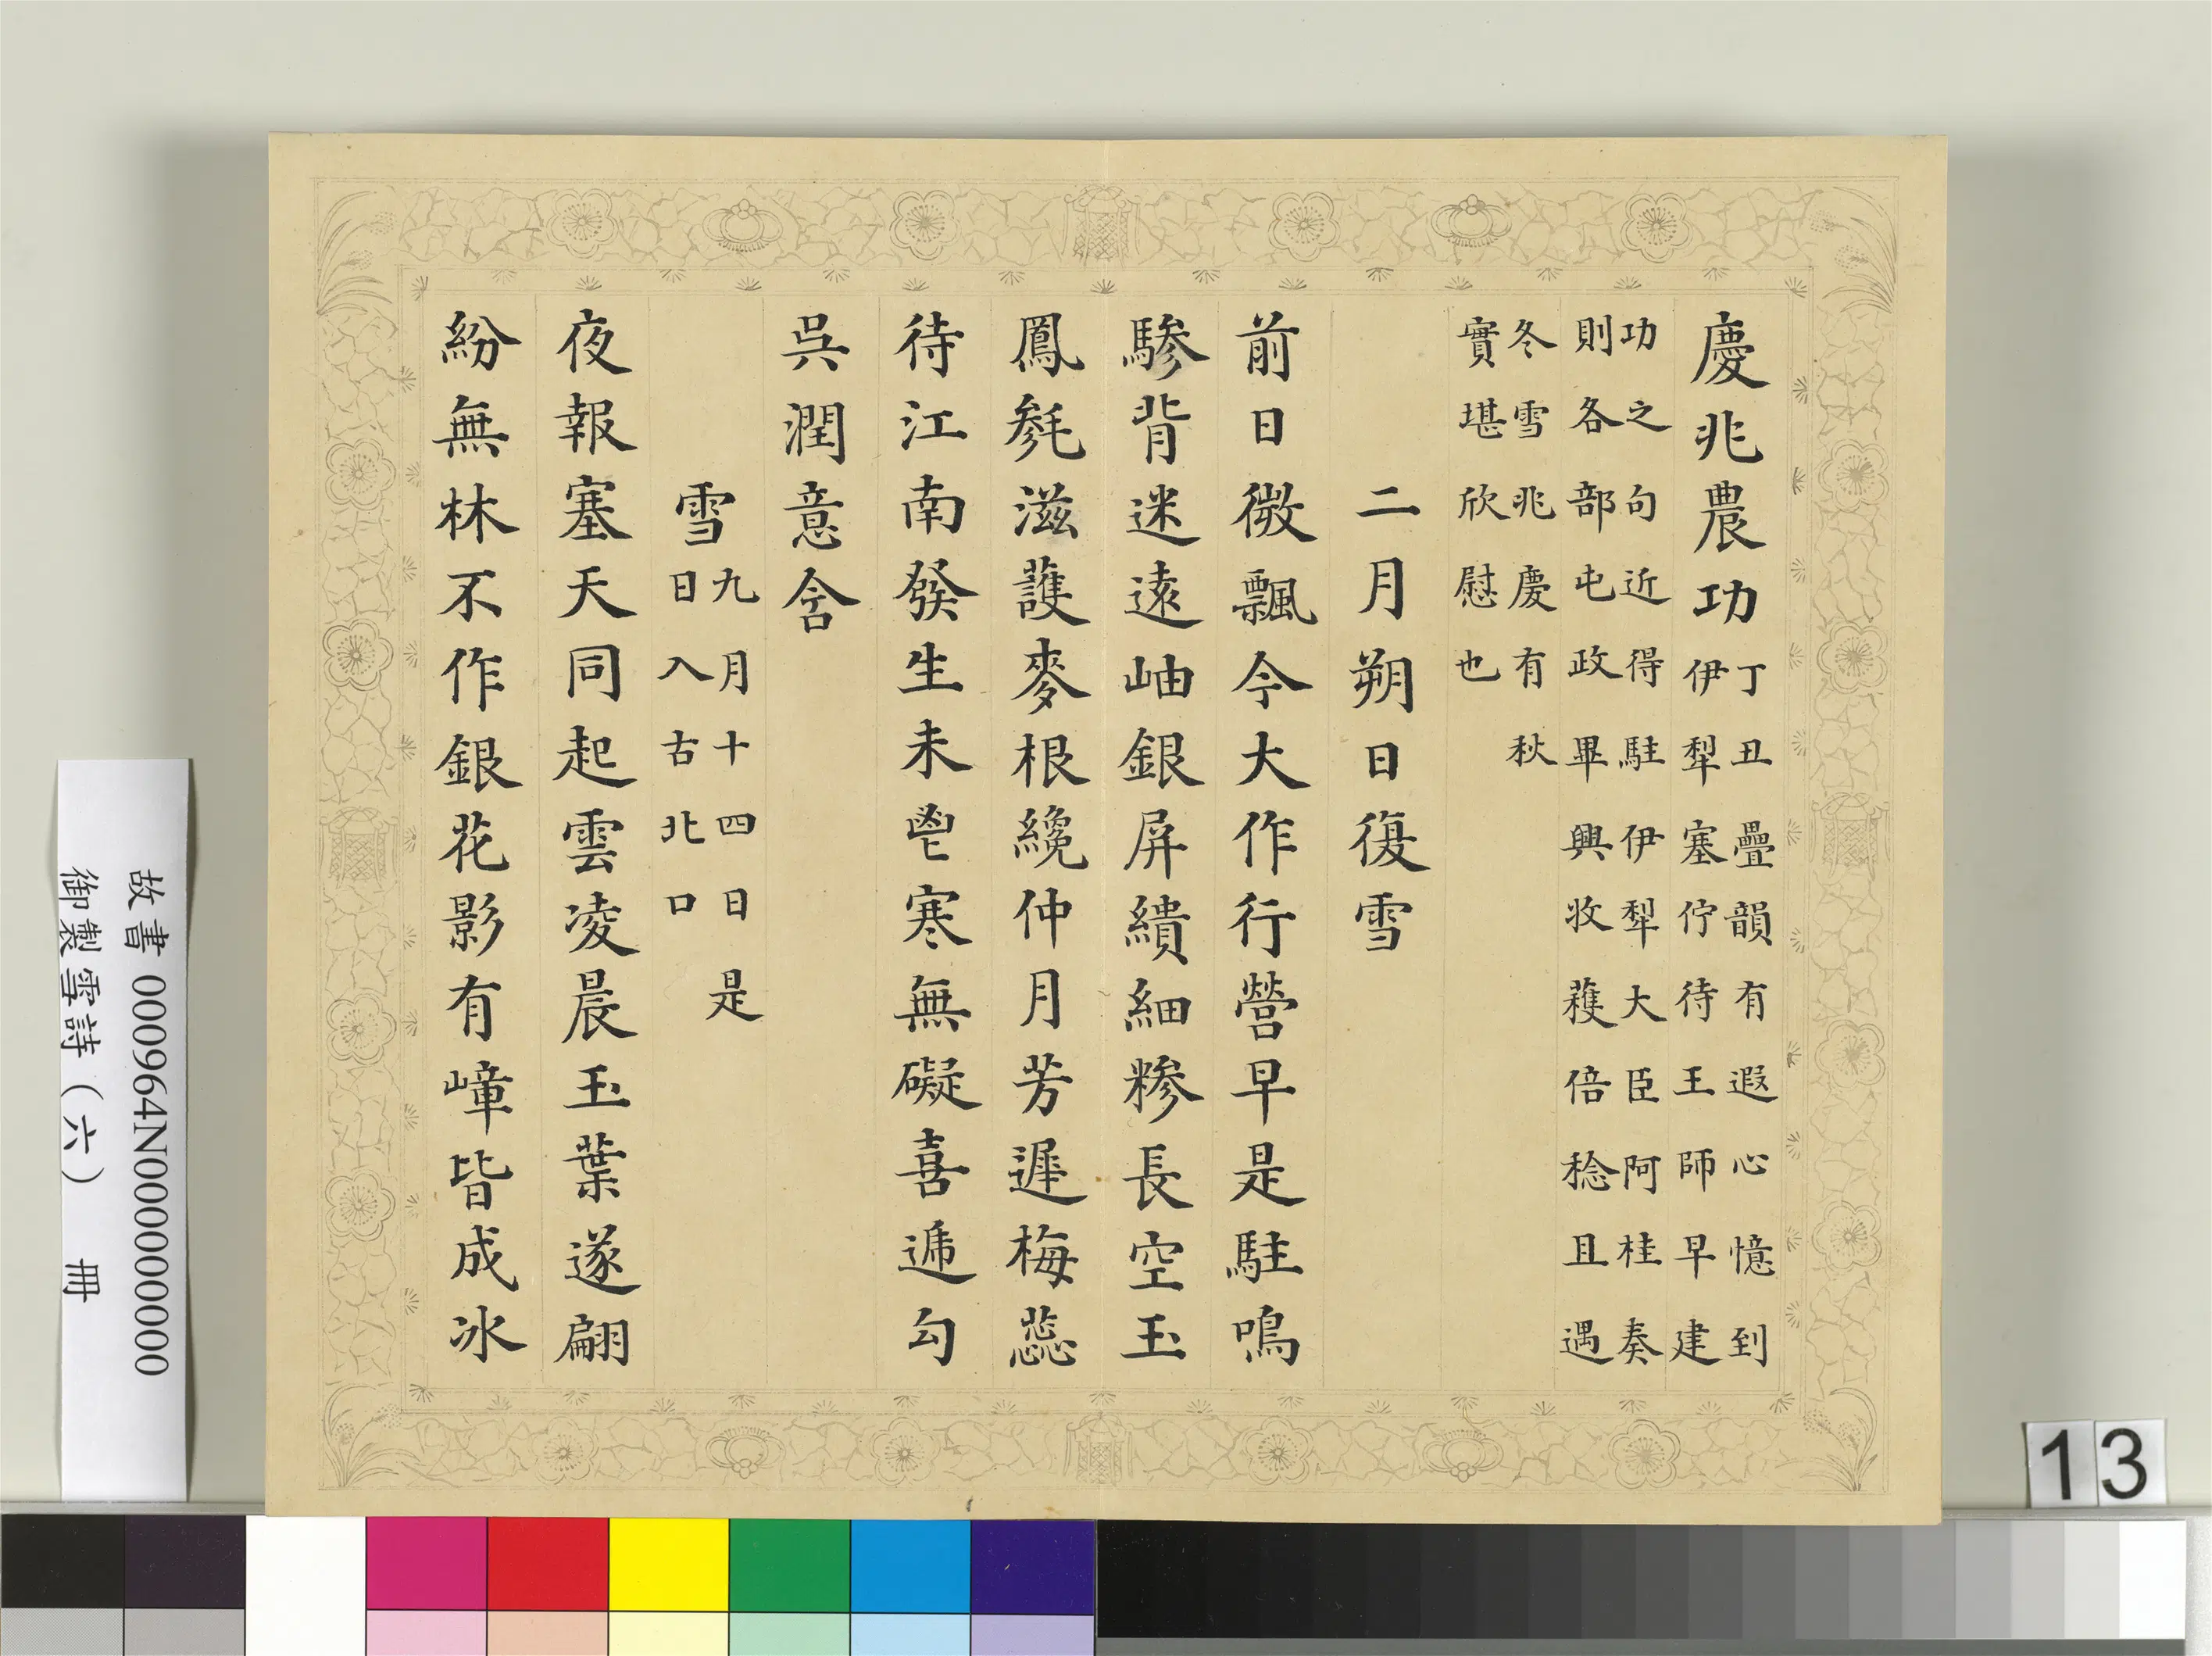 慶兆農功丁丑疊韻有遐心憶到
伊犁塞佇待王師早建
功之句近得駐伊犁大臣阿桂奏
則各部屯政畢興收穫倍稔且遇
冬雪兆慶有秋
實堪欣慰也
二月朔日復雪
前日微飄今大作行營早是駐鳴
驂背迷遠岫銀屏繢細糝長空玉
鳳毿滋護麥根纔仲月芳遲梅蕊
待江南發生未鬯寒無礙喜遞勾
吳潤意含
雪九月十四日是
日入古北口
夜報塞天同起雲凌晨玉葉遂翩
紛無林不作銀花影有嶂皆成冰
故書 000964N000000000
御製雪詩（六） 冊
13